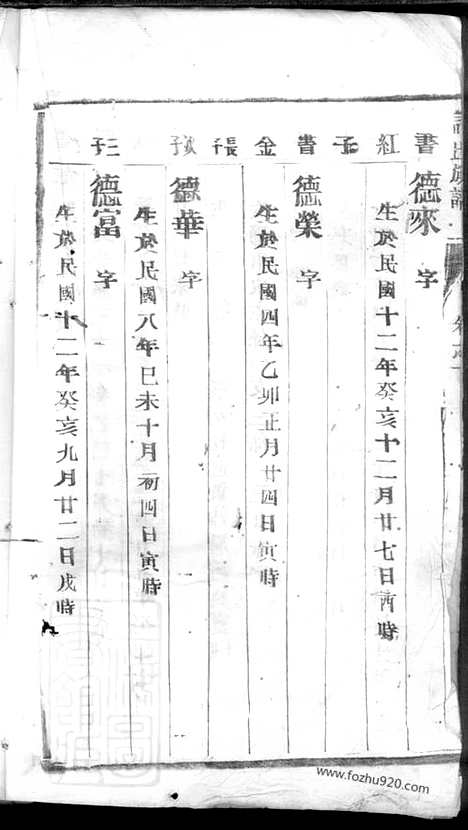 書 德來 字
紅 生於民國十二年癸亥十二月廿七日酉時
子
書 德榮 字
金 生於民國四年乙卯正月廿四日寅時
長
次子 德華 字
生於民國八年已未十月初四日寅時
三子 德富 字
生於民國十二年癸亥九月廿二日戌時
www.fozhu920.com